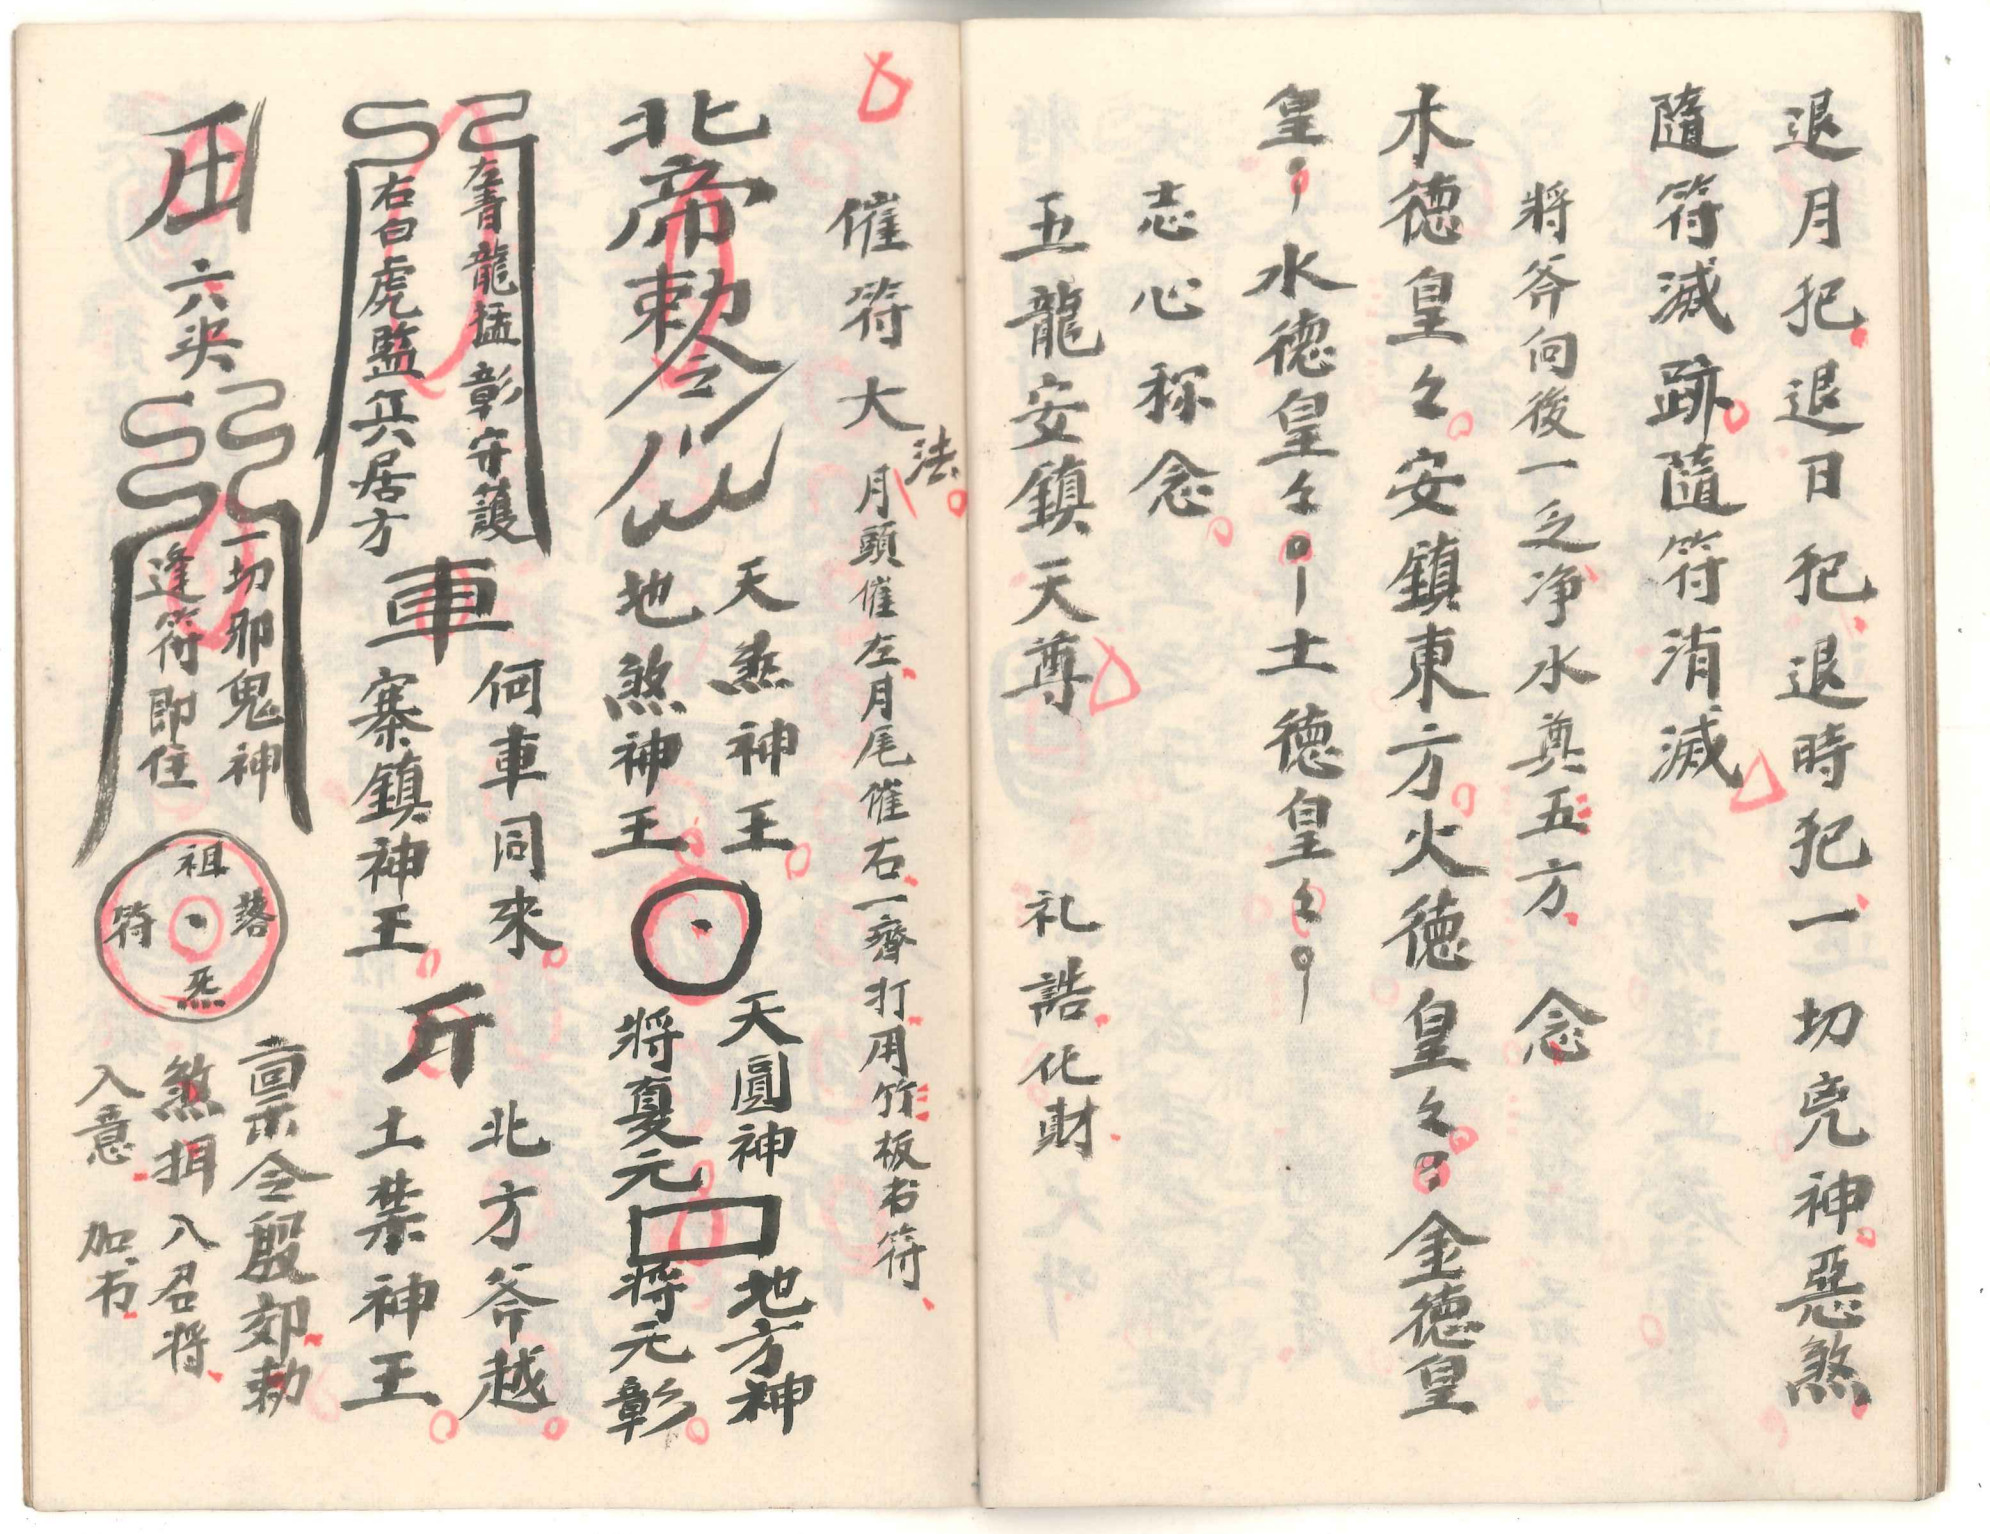 退月犯退日犯退時犯一切兇神惡煞
隨符滅跡隨符消滅
將斧向後一之净水奠五方 念
木德皇々安鎮東方火德皇々 金德皇
皇 水德皇々 土德皇々
志心称念
五龍安鎮天尊 礼誥化財
催符大法 月頭催左月尾催右一齊打用竹板书符
北帝敕令
天煞神王
地煞神王
天圓神
將夏元
地方神
將元彰
左青龍猛彰守護
右白虎監兵居方
車
何車同來
寨鎮神王
斤
北方斧越
土禁神王
六夹
一切邪鬼神
逢符即住
祖
符
落
炁
禀令殷郊勅
煞 入召将
入意 加书